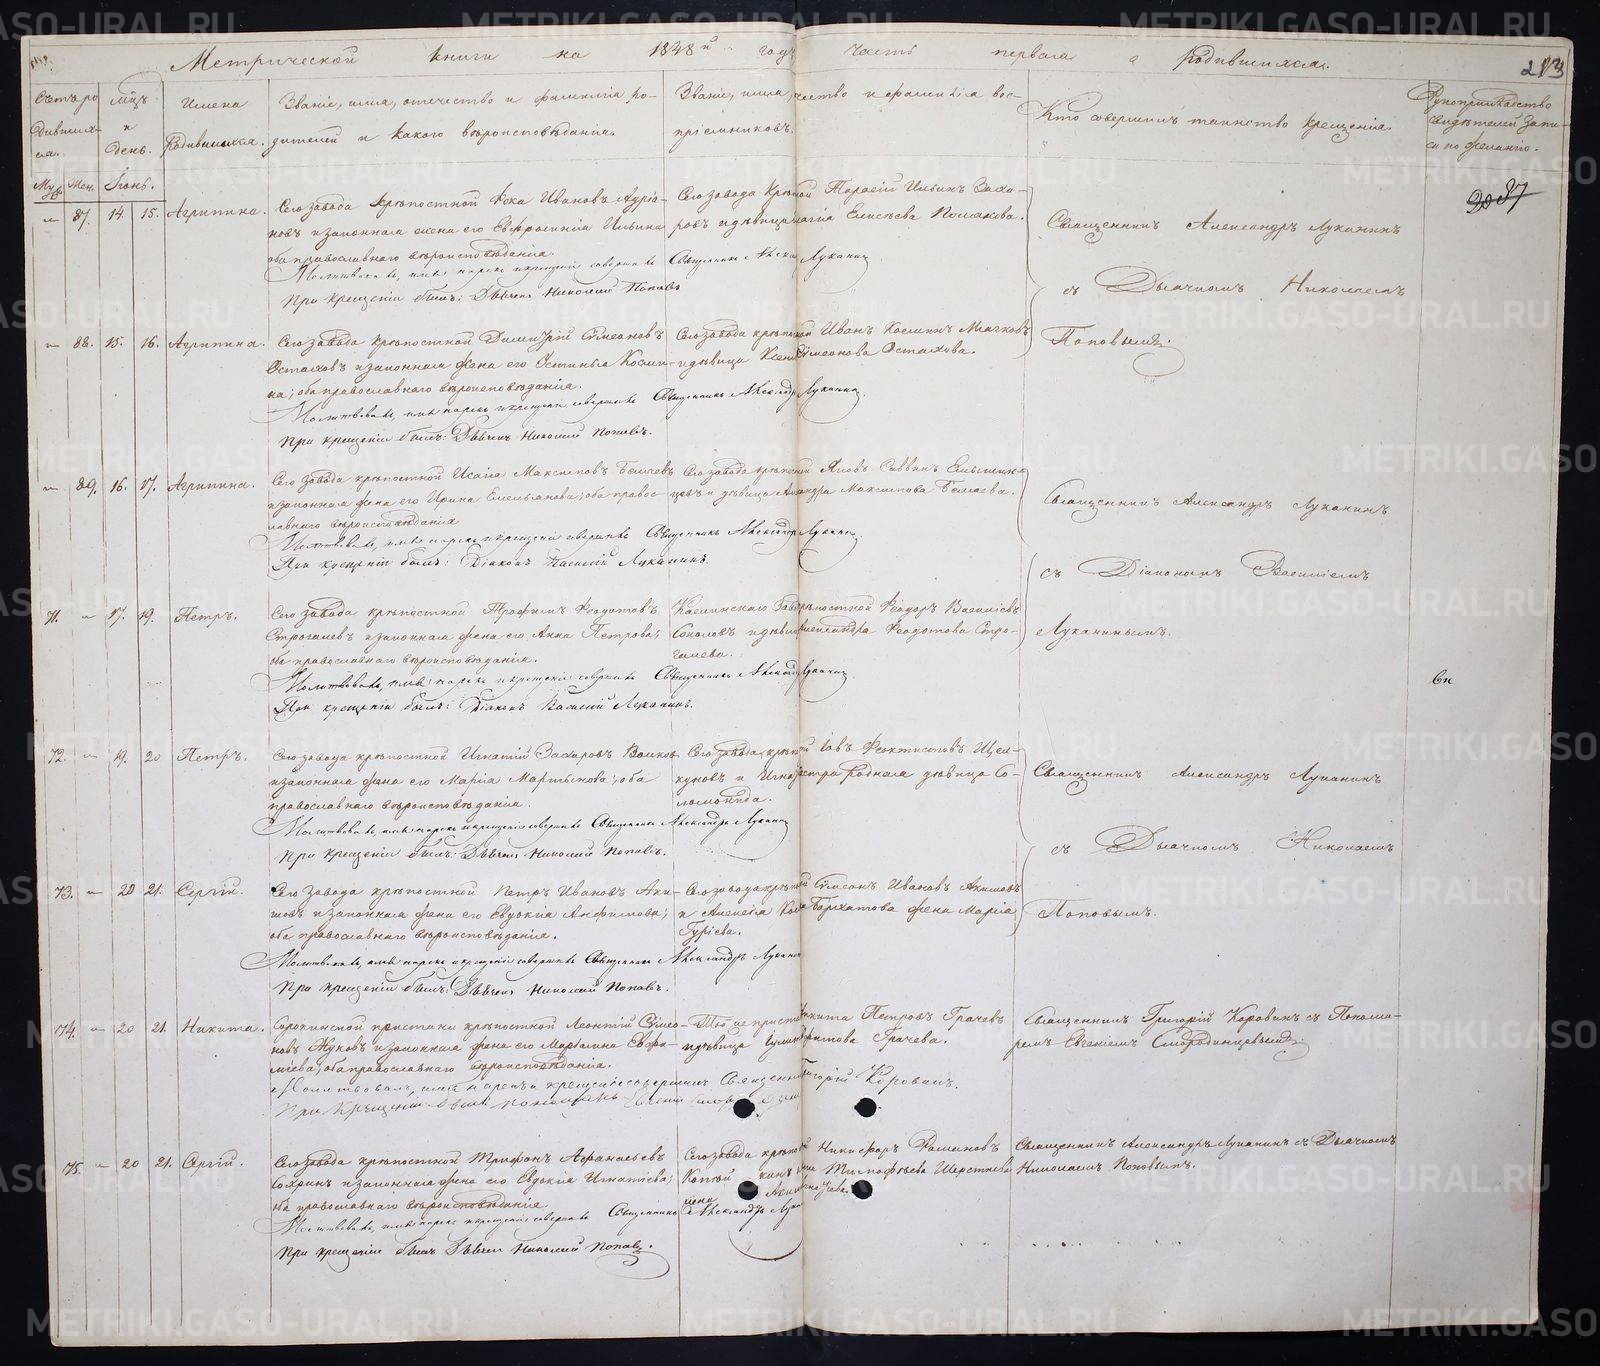 Метрической книги на 1848й годъ часть первая о родившихся.
213
Счетъ ро-
дивших-
ся.
Муж. Жен.
мѣцъ
и
день.
Іюнь.
Имена
родившихся.
Званіе, имя, отечество и фамилія ро-
дителей и какого вѣроисповѣданія.
Званіе, имя, отчество и фамилія вос-
пріемниковъ.
Кто совершилъ таинство крещенія.
Рукоприкладство
свидѣтелей запи-
си по желанію.
87. 14. 15. Агрипина.
Сего завода крѣпостной Фока Ивановъ Адріа-
новъ и законная жена его Евфросинія Ильина
оба православнаго вѣроисповѣданія.
Молитвовалъ, имя нарекъ и крещеніе совершилъ Священникъ Александръ Луканинъ
При крещеніи былъ: Дьячекъ Николай Поповъ
Сего завода Тарасій Ильинъ Заха-
ровъ и дѣвица Елисѣева Полякова.
Священникъ Александръ Луканинъ
съ Дьячкомъ Николаемъ
Поповымъ.
88. 15. 16. Агрипина.
Сего завода крѣпостной Димитрій Сѵмеоновъ
Остаховъ и законная жена его Устинья Косми-
на; оба православнаго вѣроисповѣданія.
Молитвовалъ, имя нарекъ и крещеніе совершилъ Священникъ Александръ Луканинъ.
При крещеніи былъ: Дьячекъ Николай Поповъ.
Сего завода крѣпостной Иванъ Космин Мягковъ
и дѣвица Ксенія Сѵмеонова Остахова.
89. 16. 17. Агрипина.
Сего завода крѣпостной Исаія Максимовъ Беляевъ
и законная жена его Ирина Емельянова; оба правос-
лавнаго вѣроисповѣданія
Молитвовалъ, имя нарекъ и крещеніе совершилъ Священникъ Александръ Луканинъ.
При крещеніи былъ: Діаконъ Василій Луканинъ.
Сего завода крѣпостной Яковъ Саввинъ
и дѣвица Александра Максимова Беляева.
Священникъ Александръ Луканинъ
съ Діакономъ Василіемъ
Луканинымъ.
71. 17. 19. Петръ.
Сего завода крѣпостной Трофимъ Ѳедотовъ
Строгалевъ и законная жена его Анна Петрова;
оба православнаго вѣроисповѣданія.
Молитвовалъ, имя нарекъ и крещеніе совершилъ Священникъ Александръ Луканинъ
При крещеніи былъ: Діаконъ Василій Луканинъ.
Каслинскаго Завода крѣпостной Ѳеодоръ Василіевъ
Соколовъ и дѣвица Александра Ѳедотова Стро-
галева.
72. 19. 20 Петръ.
Сего завода крѣпостной Игнатій Захаровъ Волковъ
и законная жена его Марія Мартынова; оба
православнаго вѣроисповѣданія.
Молитвовалъ, имя нарекъ и крещеніе совершилъ Священникъ Александръ Луканинъ
При крещеніи былъ: Дьячекъ Николай Поповъ.
Сего завода крѣпостной Іовъ Ѳеоктистовъ Щел-
куновъ и сестра родная дѣвица Со-
ломонида.
Священникъ Александръ Луканинъ
съ Дьячкомъ Николаемъ
Поповымъ.
73. 20 21. Сергій.
Сего завода крѣпостной Петръ Ивановъ Аки-
шовъ и законная жена его Евдокія Анфимова;
оба православнаго вѣроисповѣданія.
Молитвовалъ, имя нарекъ и крещеніе совершилъ Священникъ Александръ Луканинъ
При крещеніи былъ: Дьячекъ Николай Поповъ.
Сего завода крѣпостной Сѵмеонъ Ивановъ Акишовъ
и Алексѣя Бархатова жена Марія
Гуріева.
74. 20 21. Никита.
Сорокинской пристани крѣпостной Леонтій Сѵмео-
новъ Жуковъ и законная жена его Марѳа
оба православнаго вѣроисповѣданія.
Молитвовалъ, имя нарекъ и крещеніе совершилъ Священникъ Григорій Коровинъ.
При крещеніи былъ пономарь
Той же пристани Никита Петровъ Грачевъ
и дѣвица Грачева.
Священникъ Григорій Коровинъ съ Понома-
ремъ Евгеніемъ Смородинцевымъ.
75. 20 21. Сергій.
Сего завода крѣпостной Трифонъ Афанасьевъ
и законная жена его Евдокія Игнатіева;
оба православнаго вѣроисповѣданія.
Молитвовалъ, имя нарекъ и крещеніе совершилъ Священникъ Александръ Луканинъ
При крещеніи былъ Дьячекъ Николай Поповъ.
Сего завода крѣпостной Никифоръ Романовъ
Тимофѣева
Священникъ Александръ Луканинъ съ Дьячкомъ
Николаемъ Поповымъ.
METRIKI.GASO-URAL.RU